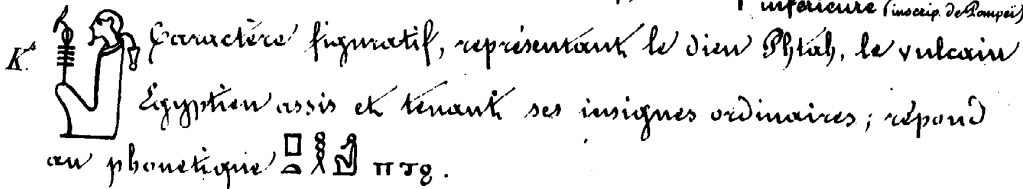 inférieure (inscrip. de Pompeï)
K. Caractère figuratif, représentant le dieu Phtah, le vulcain
Egyptien assis et tenant ses insignes ordinaires; répond
au phonetique 𓊪𓏏𓎛𓁰 ⲡⲧϩ.